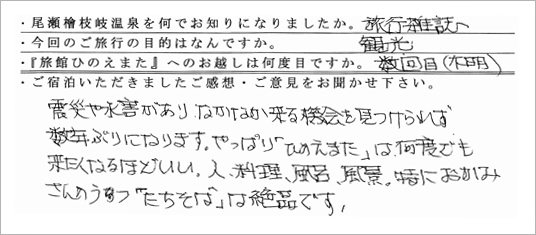 ・尾瀬檜枝岐温泉を何でお知りになりましたか。旅行雑誌
・今回のご旅行の目的はなんですか。 観光
・『旅館ひのえまた』へのお越しは何度目ですか。 数回目(不明)
・ご宿泊いただきましたご感想・ご意見をお聞かせ下さい。
震災や水害があり なかなか来る機会を見つけられず
数年ぶりになります。やっぱり「ひのえまた」は何度でも
来たくなるほどいい。人、料理、風呂、風景。特におかみ
さんのうつ "たちそば"は絶品です。